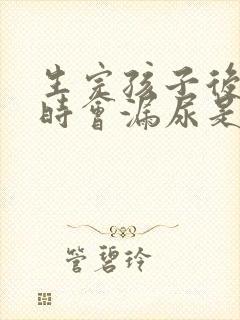 生完孩子後
時會漏尿是
管碧玲